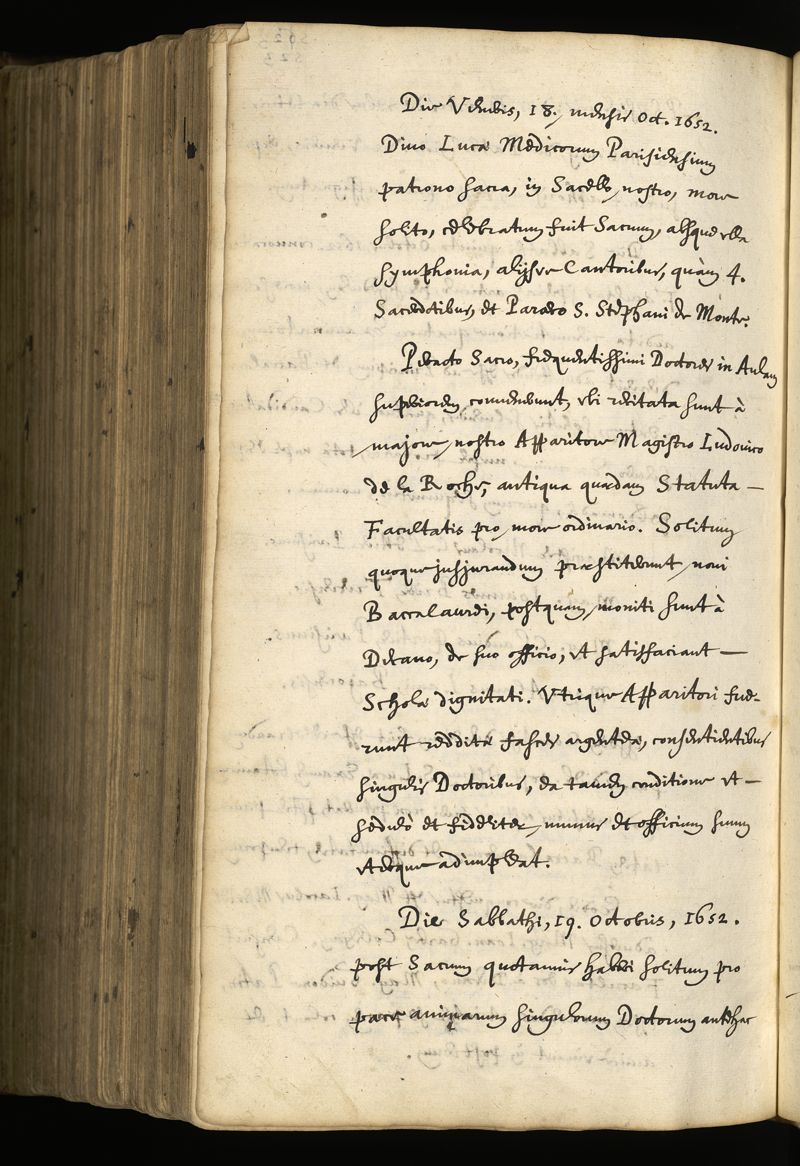 Die Veneris, 18. mensis Oct. 1652.
Divo Lucæ Medicorum Parisiensium
patrono sacra, in Sacello nostro, more
solito, celebratum fuit Sacrum, absque ulla
symphonia, alijsve Cantoribus, quàm 4.
Sacerdotibus, et Paræco S. Stephani de Monte.
Peracto Sacro, frequentissimi Doctores in Aulam
superiorem convenerunt, vbi recitata sunt à
majore nostro Apparitore Magistro Ludovico
de la Roche, antiqua quædam Statuta –
Facultatis pro more ordinario. Solitum
quoque jusjurandum præstiterunt novi
Baccalaurei, postquam moniti sunt à
Decano, de suo officio, vt satisfaciant –
Scholæ dignitati. Vtrique Apparitori fue-
runt redditæ fasces argenteæ, consentientibus
singulis Doctoribus, ea tamen conditione vt –
sedulò et fideliter munus et officium suum
vterque adimpleat.
Die Sabbathi, 19. Octobris, 1652.
post Sacrum quotannis haberi solitum pro
pace animarum singulorum Doctorum antehac